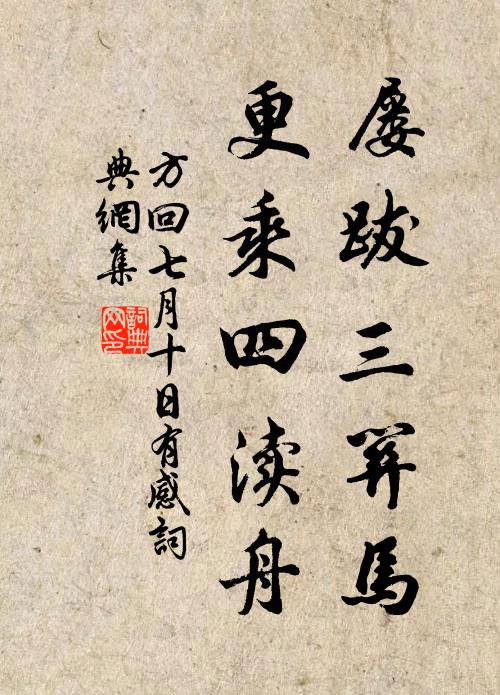 屡跋三笄馬
更乘四渎舟
方回七月十日有感詞
典網集
詞典
网印